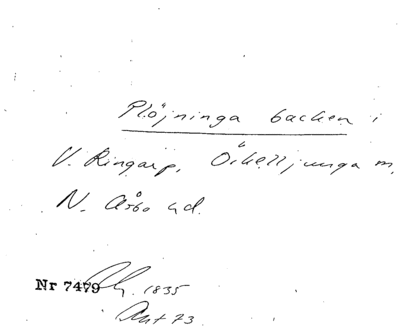 Plöjninga backen i
V. Ringarp, Örkelljunga m,
N. Åsbo hd.
Nr 7479 1835
Akt 73